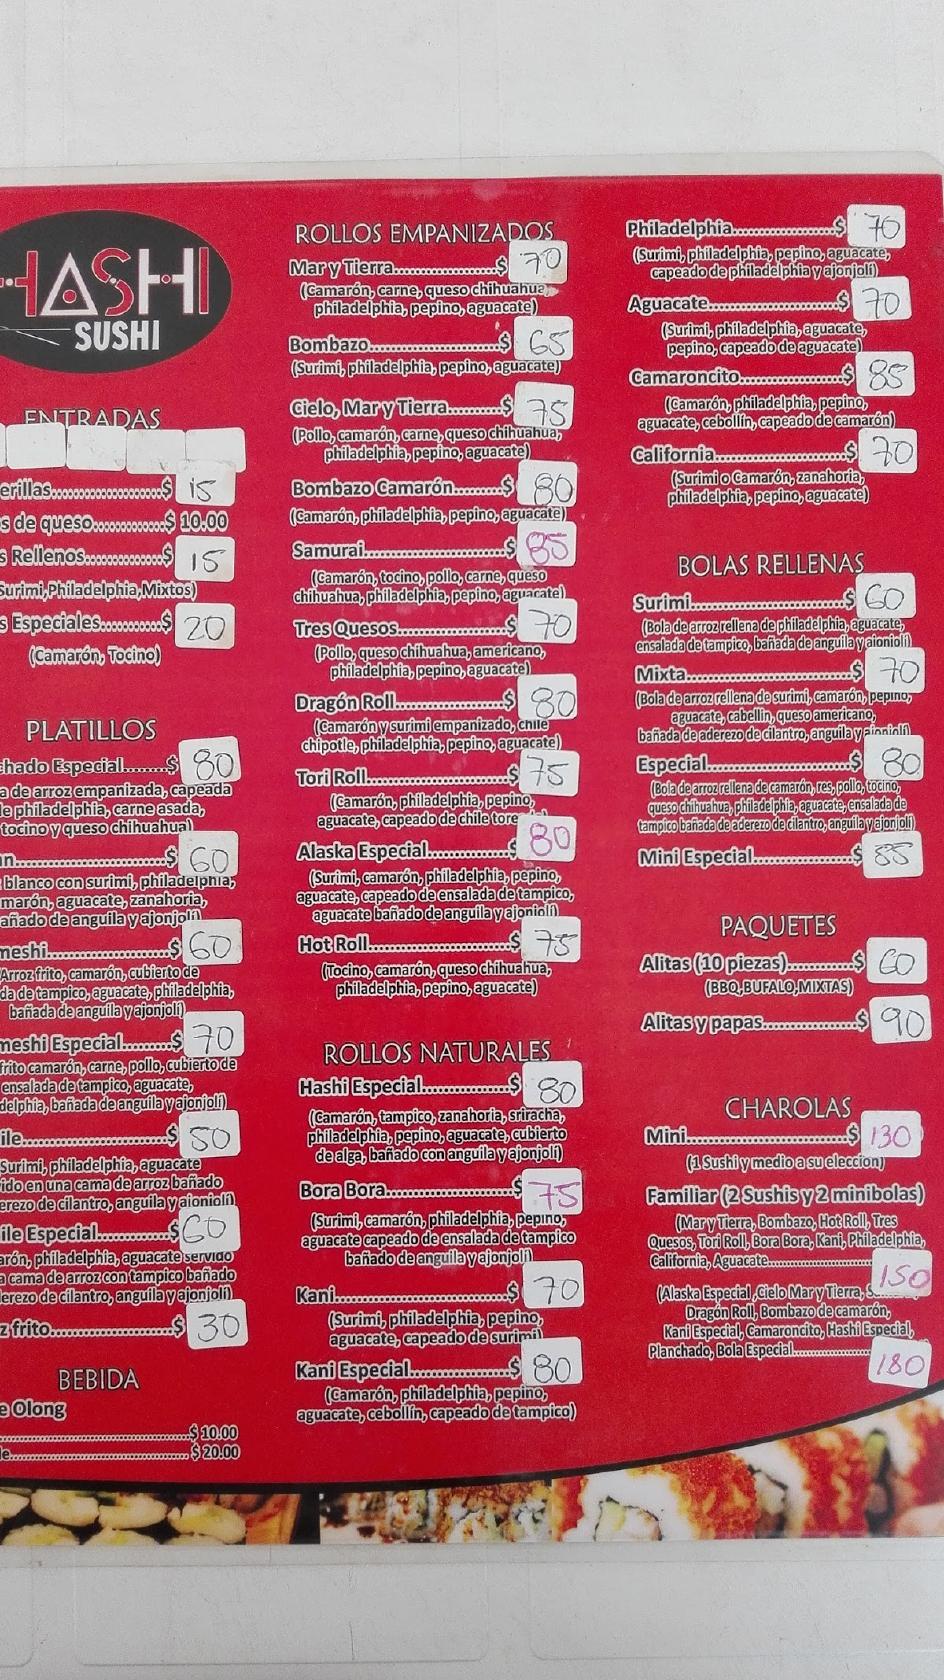 HASHI
SUSHI
ENTRADAS
erillas....................$ 15
s de queso.............$ 10.00
s Rellenos...............$ 15
Surimi,Philadelphia,Mixtos)
s Especiales............$ 20
(Camarón, Tocino)
PLATILLOS
chado Especial........$ 80
a de arroz empanizada, capeada
e philadelphia, carne asada,
tocino y queso chihuahua)
n..........................$ 60
blanco con surimi, philadelphia,
marón, aguacate, zanahoria,
añado de anguila y ajonjolí)
meshi....................$ 60
Arroz frito, camarón, cubierto de
da de tampico, aguacate, philadelphia,
bañada de anguila y ajonjolí)
meshi Especial.........$ 70
frito camarón, carne, pollo, cubierto de
ensalada de tampico, aguacate,
delphia, bañada de anguila y ajonjolí)
ile.........................$ 50
Surimi, philadelphia, aguacate
ido en una cama de arroz bañado
erezo de cilantro, anguila y ajonjolí)
ile Especial.............$ 60
arón, philadelphia, aguacate servido
a cama de arroz con tampico bañado
erezo de cilantro, anguila y ajonjolí)
z frito....................$ 30
BEBIDA
e Olong
..............................$ 10.00
le............................$ 20.00
ROLLOS EMPANIZADOS
Mar y Tierra...................$ 70
(Camarón, carne, queso chihuahua,
philadelphia, pepino, aguacate)
Bombazo........................$ 65
(Surimi, philadelphia, pepino, aguacate)
Cielo, Mar y Tierra..........$ 75
(Pollo, camarón, carne, queso chihuahua,
philadelphia, pepino, aguacate)
Bombazo Camarón..........$ 80
(Camarón, philadelphia, pepino, aguacate)
Samurai.........................$ 85
(Camarón, tocino, pollo, carne, queso
chihuahua, philadelphia, pepino, aguacate)
Tres Quesos....................$ 70
(Pollo, queso chihuahua, americano,
philadelphia, pepino, aguacate)
Dragón Roll....................$ 80
(Camarón y surimi empanizado, chile
chipotle, philadelphia, pepino, aguacate)
Tori Roll.........................$ 75
(Camarón, philadelphia, pepino,
aguacate, capeado de chile tore
Alaska Especial..............$ 80
(Surimi, camarón, philadelphia, pepino,
aguacate, capeado de ensalada de tampico,
aguacate bañado de anguila y ajonjolí)
Hot Roll.........................$ 75
(Tocino, camarón, queso chihuahua,
philadelphia, pepino, aguacate)
ROLLOS NATURALES
Hashi Especial................$ 80
(Camarón, tampico, zanahoria, sriracha,
philadelphia, pepino, aguacate, cubierto
de alga, bañado con anguila y ajonjolí)
Bora Bora.......................$ 75
(Surimi, camarón, philadelphia, pepino,
aguacate capeado de ensalada de tampico
bañado de anguila y ajonjolí)
Kani...............................$ 70
(Surimi, philadelphia, pepino,
aguacate, capeado de surimi)
Kani Especial..................$ 80
(Camarón, philadelphia, pepino,
aguacate, cebollín, capeado de tampico)
Philadelphia...................$ 70
(Surimi, philadelphia, pepino, aguacate,
capeado de philadelphia y ajonjolí)
Aguacate........................$ 70
(Surimi, philadelphia, aguacate,
pepino, capeado de aguacate)
Camaroncito...................$ 85
(Camarón, philadelphia, pepino,
aguacate, cebollín, capeado de camarón)
California........................$ 70
(Surimi o Camarón, zanahoria,
philadelphia, pepino, aguacate)
BOLAS RELLENAS
Surimi............................$ 60
(Bola de arroz rellena de philadelphia, aguacate,
ensalada de tampico, bañada de anguila y ajonjolí)
Mixta.............................$ 70
(Bola de arroz rellena de surimi, camarón, pepino,
aguacate, cabellin, queso americano,
bañada de aderezo de cilantro, anguila y ajonjolí)
Especial.........................$ 80
(Bola de arroz rellena de camarón, res, pollo, tocino,
queso chihuahua, philadelphia, aguacate, ensalada de
tampico bañada de aderezo de cilantro, anguila y ajonjolí)
Mini Especial..................$ 85
PAQUETES
Alitas (10 piezas).............$ 60
(BBQ,BUFALO,MIXTAS)
Alitas y papas.................$ 90
CHAROLAS
Mini...............................$ 130
(1 Sushi y medio a su elección)
Familiar (2 Sushis y 2 minibolas)
(Mar y Tierra, Bombazo, Hot Roll, Tres
Quesos, Tori Roll, Bora Bora, Kani, Philadelphia,
California, Aguacate........................ 150
(Alaska Especial ,Cielo Mar y Tierra,
Dragón Roll, Bombazo de camarón,
Kani Especial, Camaroncito, Hashi Especial,
Planchado, Bola Especial.................. 180